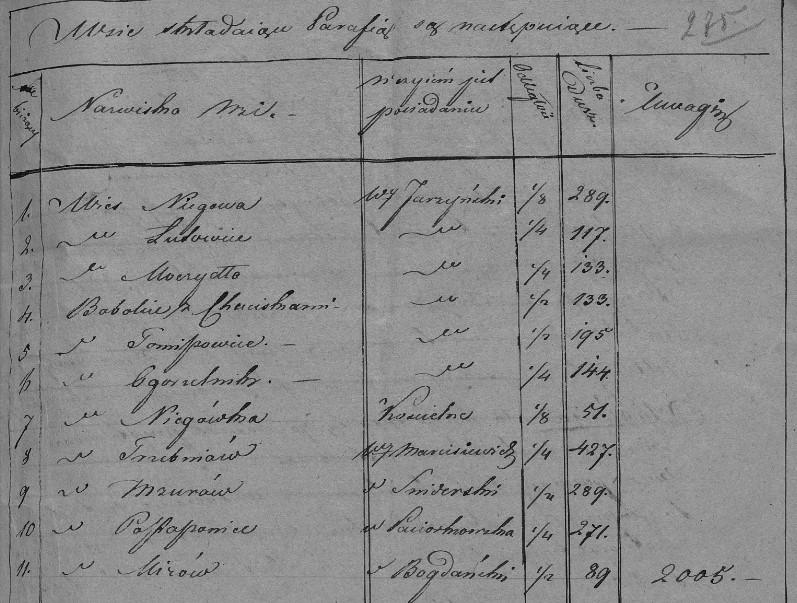 Wsie składaiące Parafią są następuiące. — 275.
No bieżący Nazwiska Wsi. — w czyim jest posiadaniu Odległość Liczba Dusz. Uwagi
1. Wieś Niegowa W J Jarzyński 1/8 289.
2. " Ludwice " 1/4 117.
3. " Moczydło " 1/4 133.
4. Bobolice z Chruistkami " 1/2 133.
5 " Tomiszowice. — " 1/2 195
6 " Ogorzelnik. — " 1/4 144.
7 " Niegówka Kościelne 1/8 51.
8 " Trzebniów W J Marcisiewicz 1/4 427.
9 " Mzurów " Sniderski 1/2 289.
10 " Postaszowice " Paciorkowska 1/4 271.
11. " Mirów " Bogdański 1/2 89 2005. —